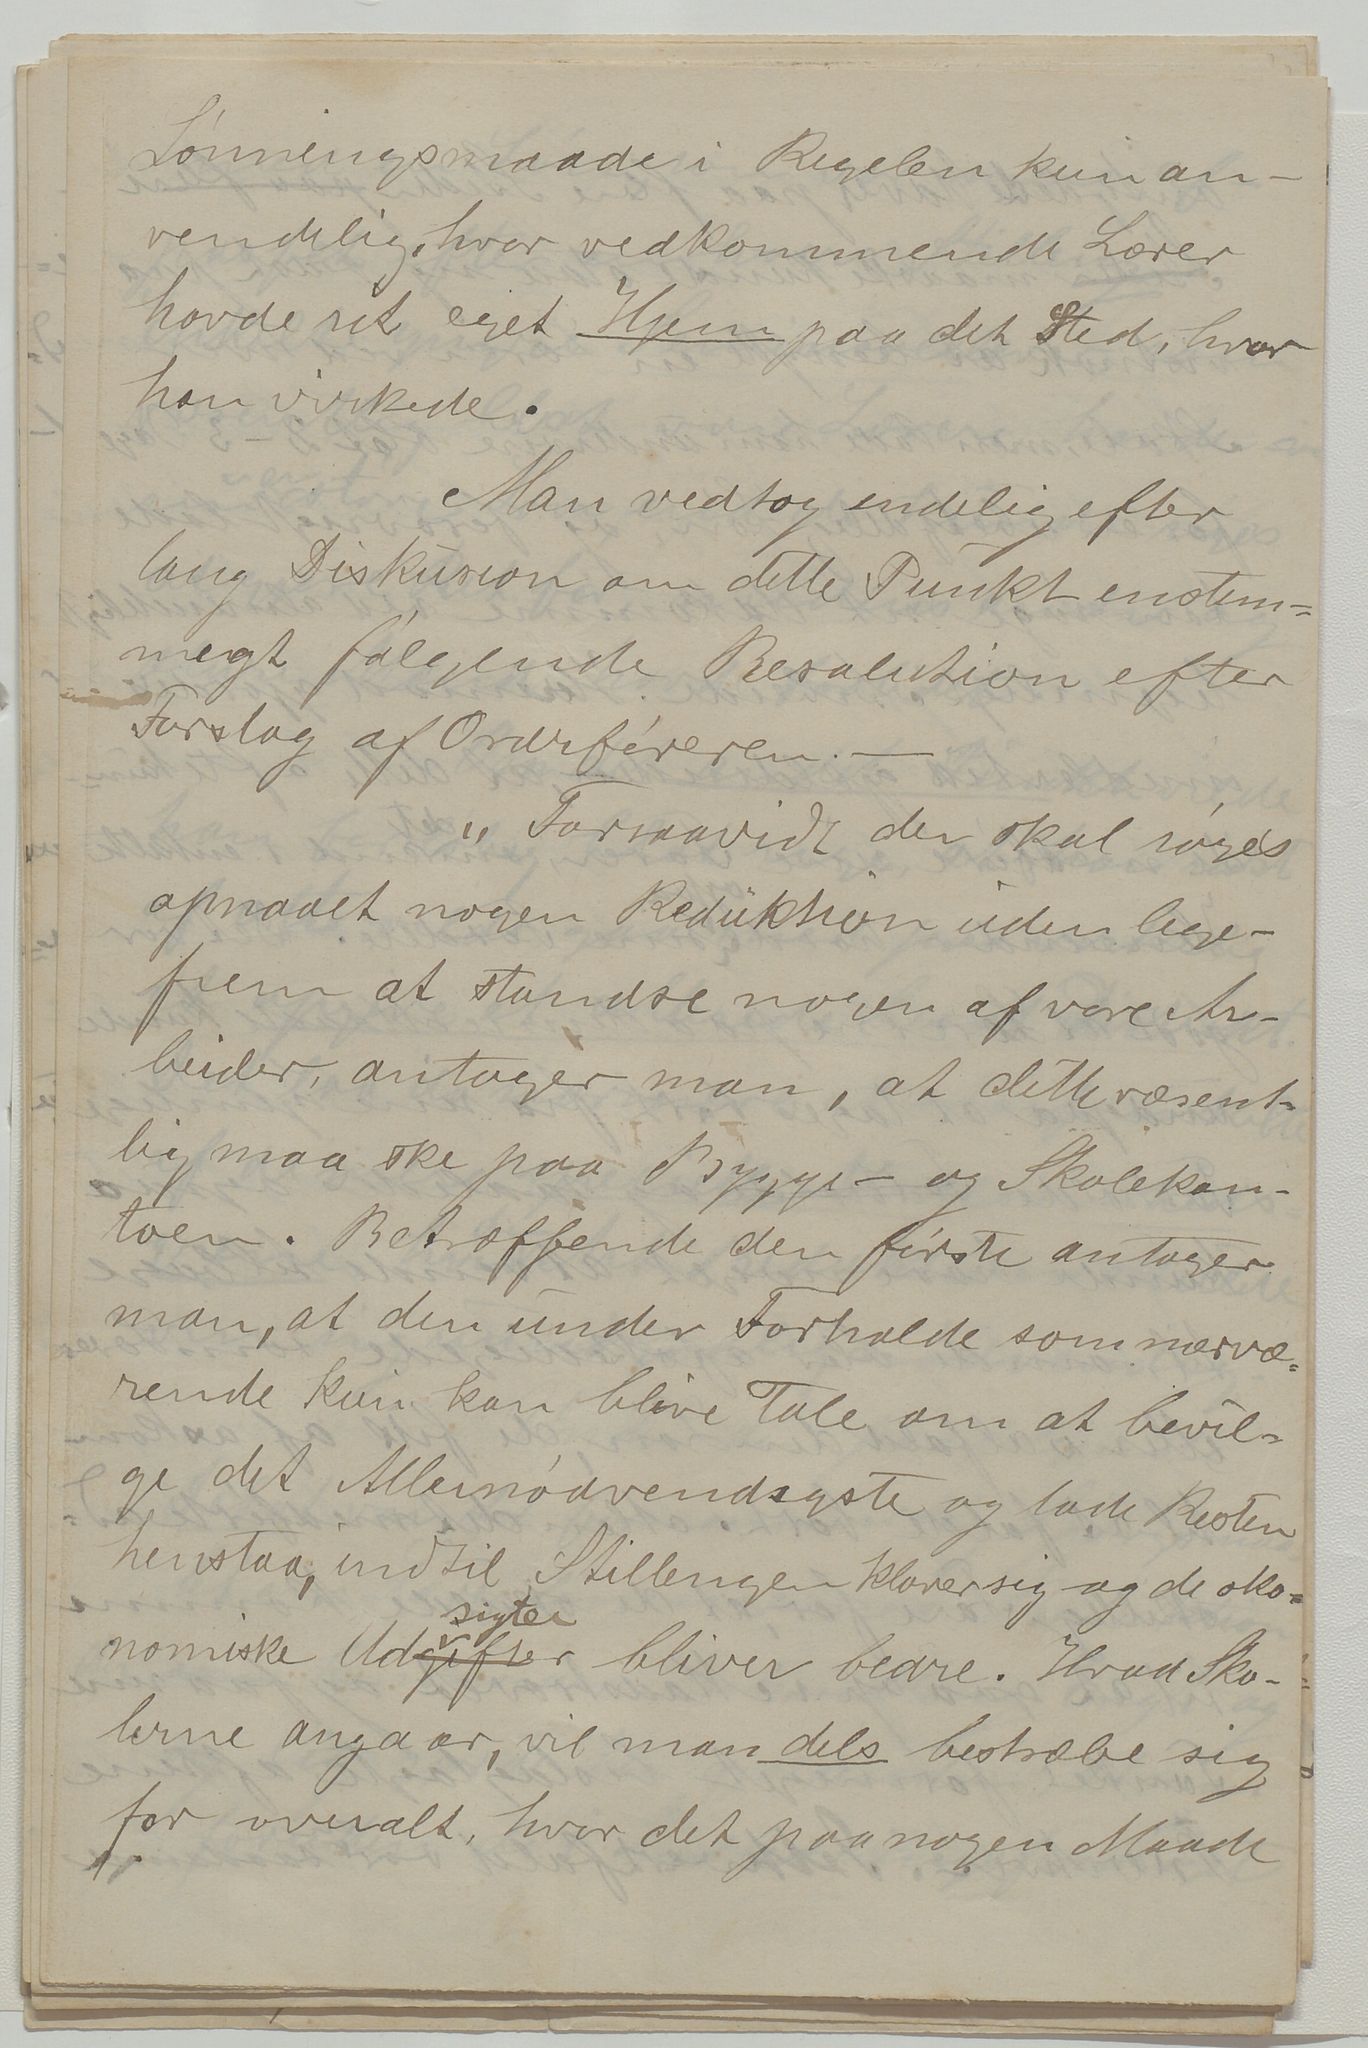 Lønningsmaade i Regelen kun an-
vendelig, hvor vedkommende Lærer
havde sit eget Hjem paa det Sted, hvor
han virkede.
Man vedtog endelig efter
lang Diskusion om dette Punkt enstem-
megt følgende Resolution efter
Forslag af Ordføreren. —
„Forsaavidt der skal søges
opnaaet nogen Reduktion uden lige-
frem at standse nogen af vore Ar-
beider, antager man, at dette væsent-
lig maa ske paa Bygge- og Skolekon-
toen. Betræffende den første antager
man, at den under Forholde som nærvæ-
rende kun kan blive Tale om at bevil-
ge det Allernødvendigste og lade Resten
henstaa, indtil Stillingen klarer sig og de øko-
sigter
nomiske Udgifter bliver bedre. Hvad Sko-
lerne angaar, vil man dels bestræbe sig
for overalt, hvor det paa nogen Maade